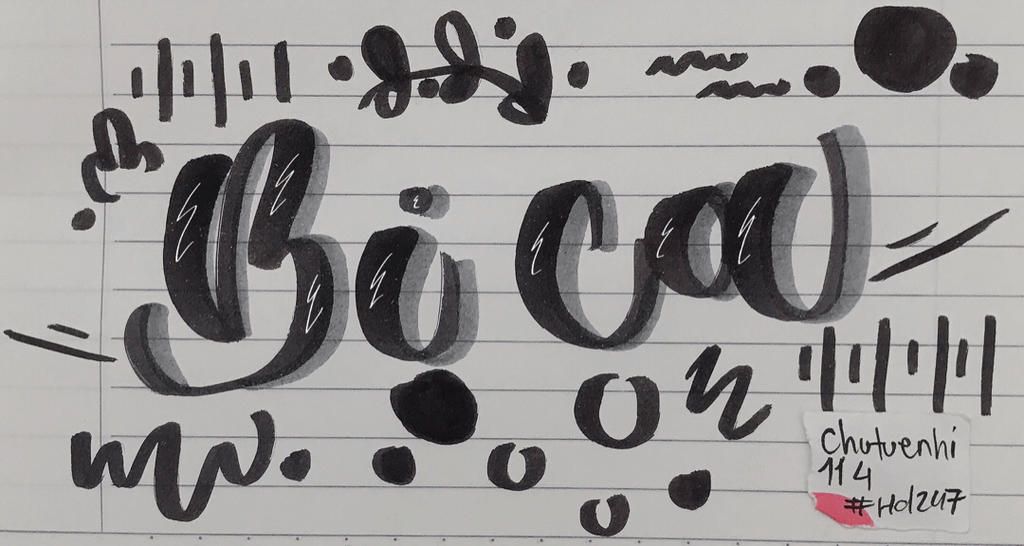 Bi ca
Chutuenhi
114
#Hd247